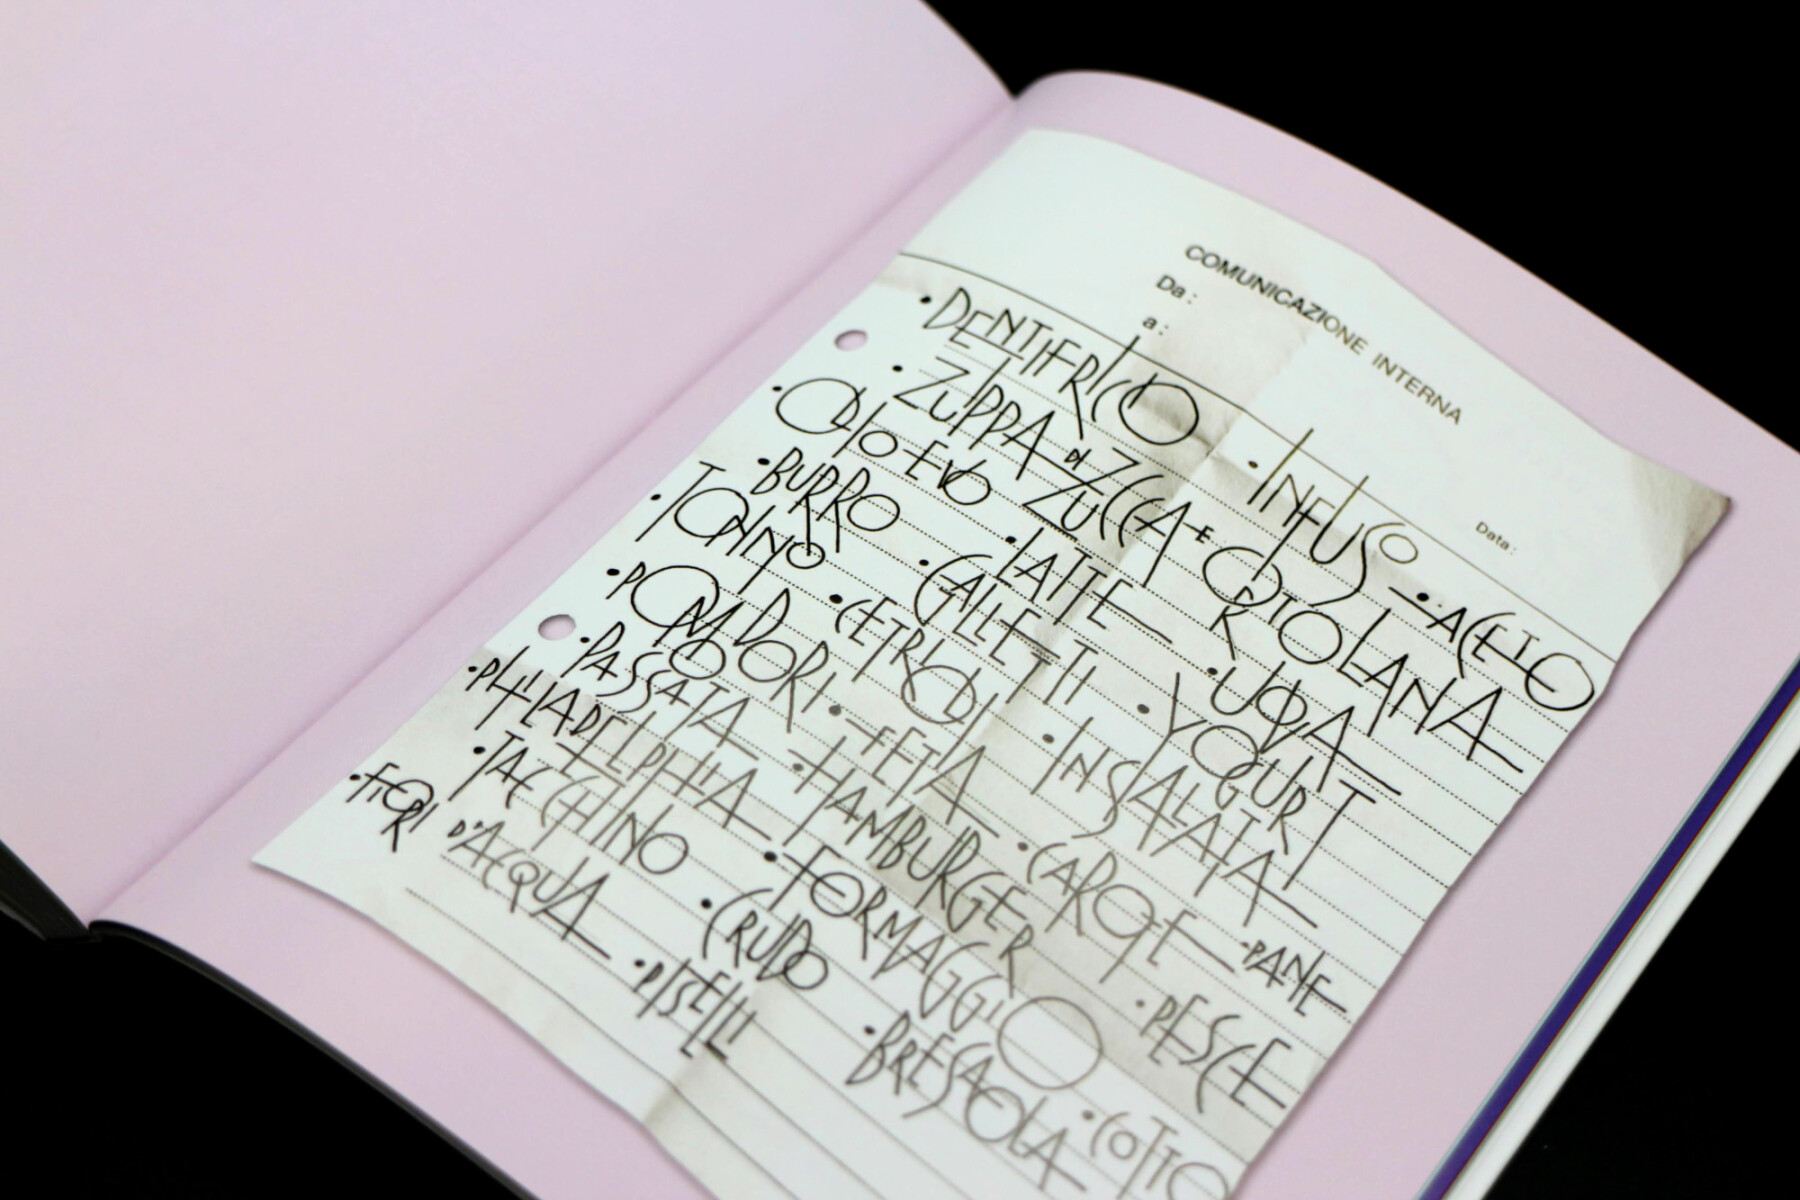 COMUNICAZIONE INTERNA
Da:
a:
Data:
•DENTIFRICIO •INFUSO •ACETO
•ZUPPA DI ZUCCA E ORTOLANA
•OLIO EVO ZUCCA RTOLANA
•BURRO •LATTE •UOVA
•TONINO •GALLETTI •YOGURT
•POMODORI •CETRIOLI •INSALATA
•PASSATA •FETA •CAROTE •PANE
•PHILADELPHIA •HAMBURGER •PESCE
•TACCHINO •FORMAGGIO •COTTO
•FIORI D'ACQUA •CRUDO •BRESAOLA
•PISELLI